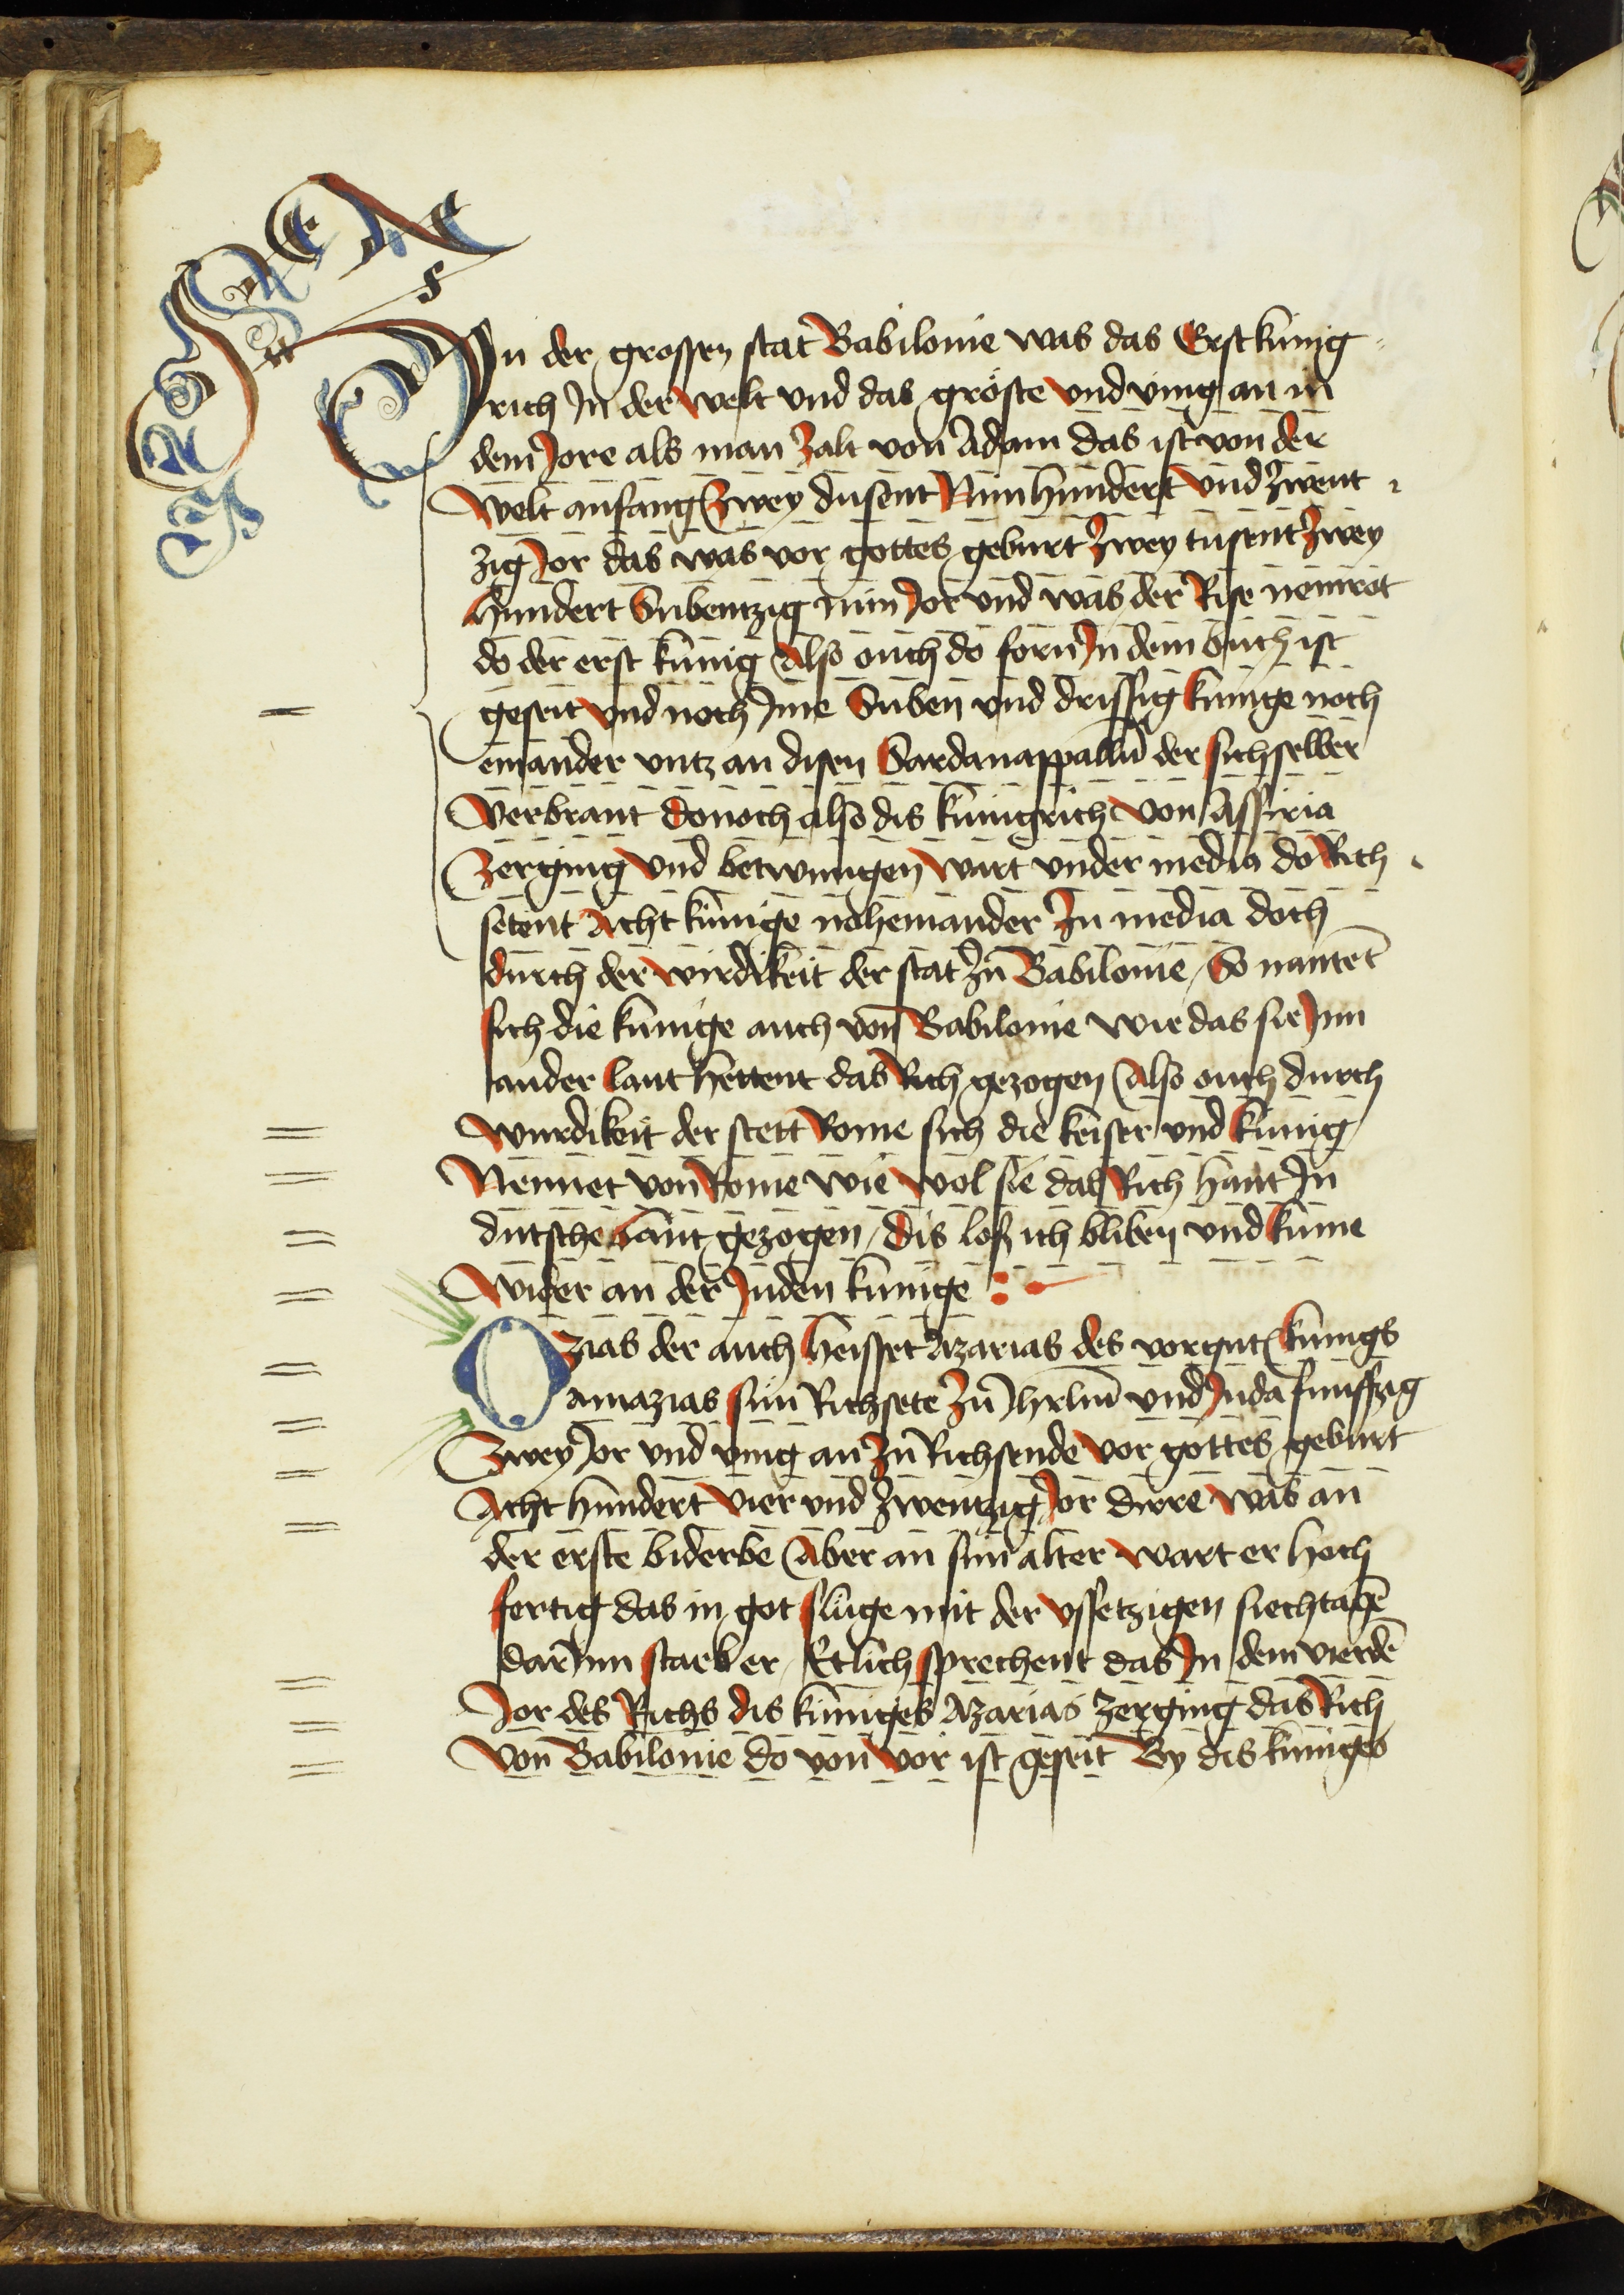 In der grossen stat Babilonie was das Erst kúnig
rich In der welt vnd das gröste vnd ving an in
dem Jore als man zalt von Adam das ist von der
welt anfang Zwey dusent Nún hundert vnd zwent
zig Jor das was vor gottes geburt zwey tusent zwey
hundert Subentzig nún Jor vnd was der Rise nemrot
do der erst kúnig Also ouch do forn In dem buch ist
geseit vnd noch Ime Suben vnd drissig kúnige noch
einander vntz an disen Sardanappallū der sich selber
verbrant donoch also dis kúnigrich von Assiria
Zerging vnd betwungen wart vnder media do Rich
setent Acht kúnige noheinander In media doch
durch der wirdikeit der stat zu Babilonie / So nantēt
sich die kúnige auch von Babilonie wie das sie Inn
ander lant hettent das Rich gezogen Also ouch durch
wurdikeit der stett Rome sich die keiser vnd kúnig
Nennet von Rome wie wol sie das Rich hant In
dutsche lant gezogen / dis los ich bliben vnd kume
wider an der Juden kúnige :
Ozias der auch heisset Azarias des vorgnt kúnigs
amazias sun Richsete zu Jhrlm̄ vnd Juda funffzig
Zwey Jor vnd ving an zu Richsende vor gottes geburt
Acht hundert vier vnd zwentzig Jor dirre was an
der erste biderbe Aber an sim alter wart er hoch
fertig das in got sluge mit der vssetzigen siechtagē
dar Inn starb er / Etlich sprechent das In dem vierdē
Jor des Richs dis kúniges Azarias zerging das Rich
von Babilonie do von vor ist geseit By dis kúniges